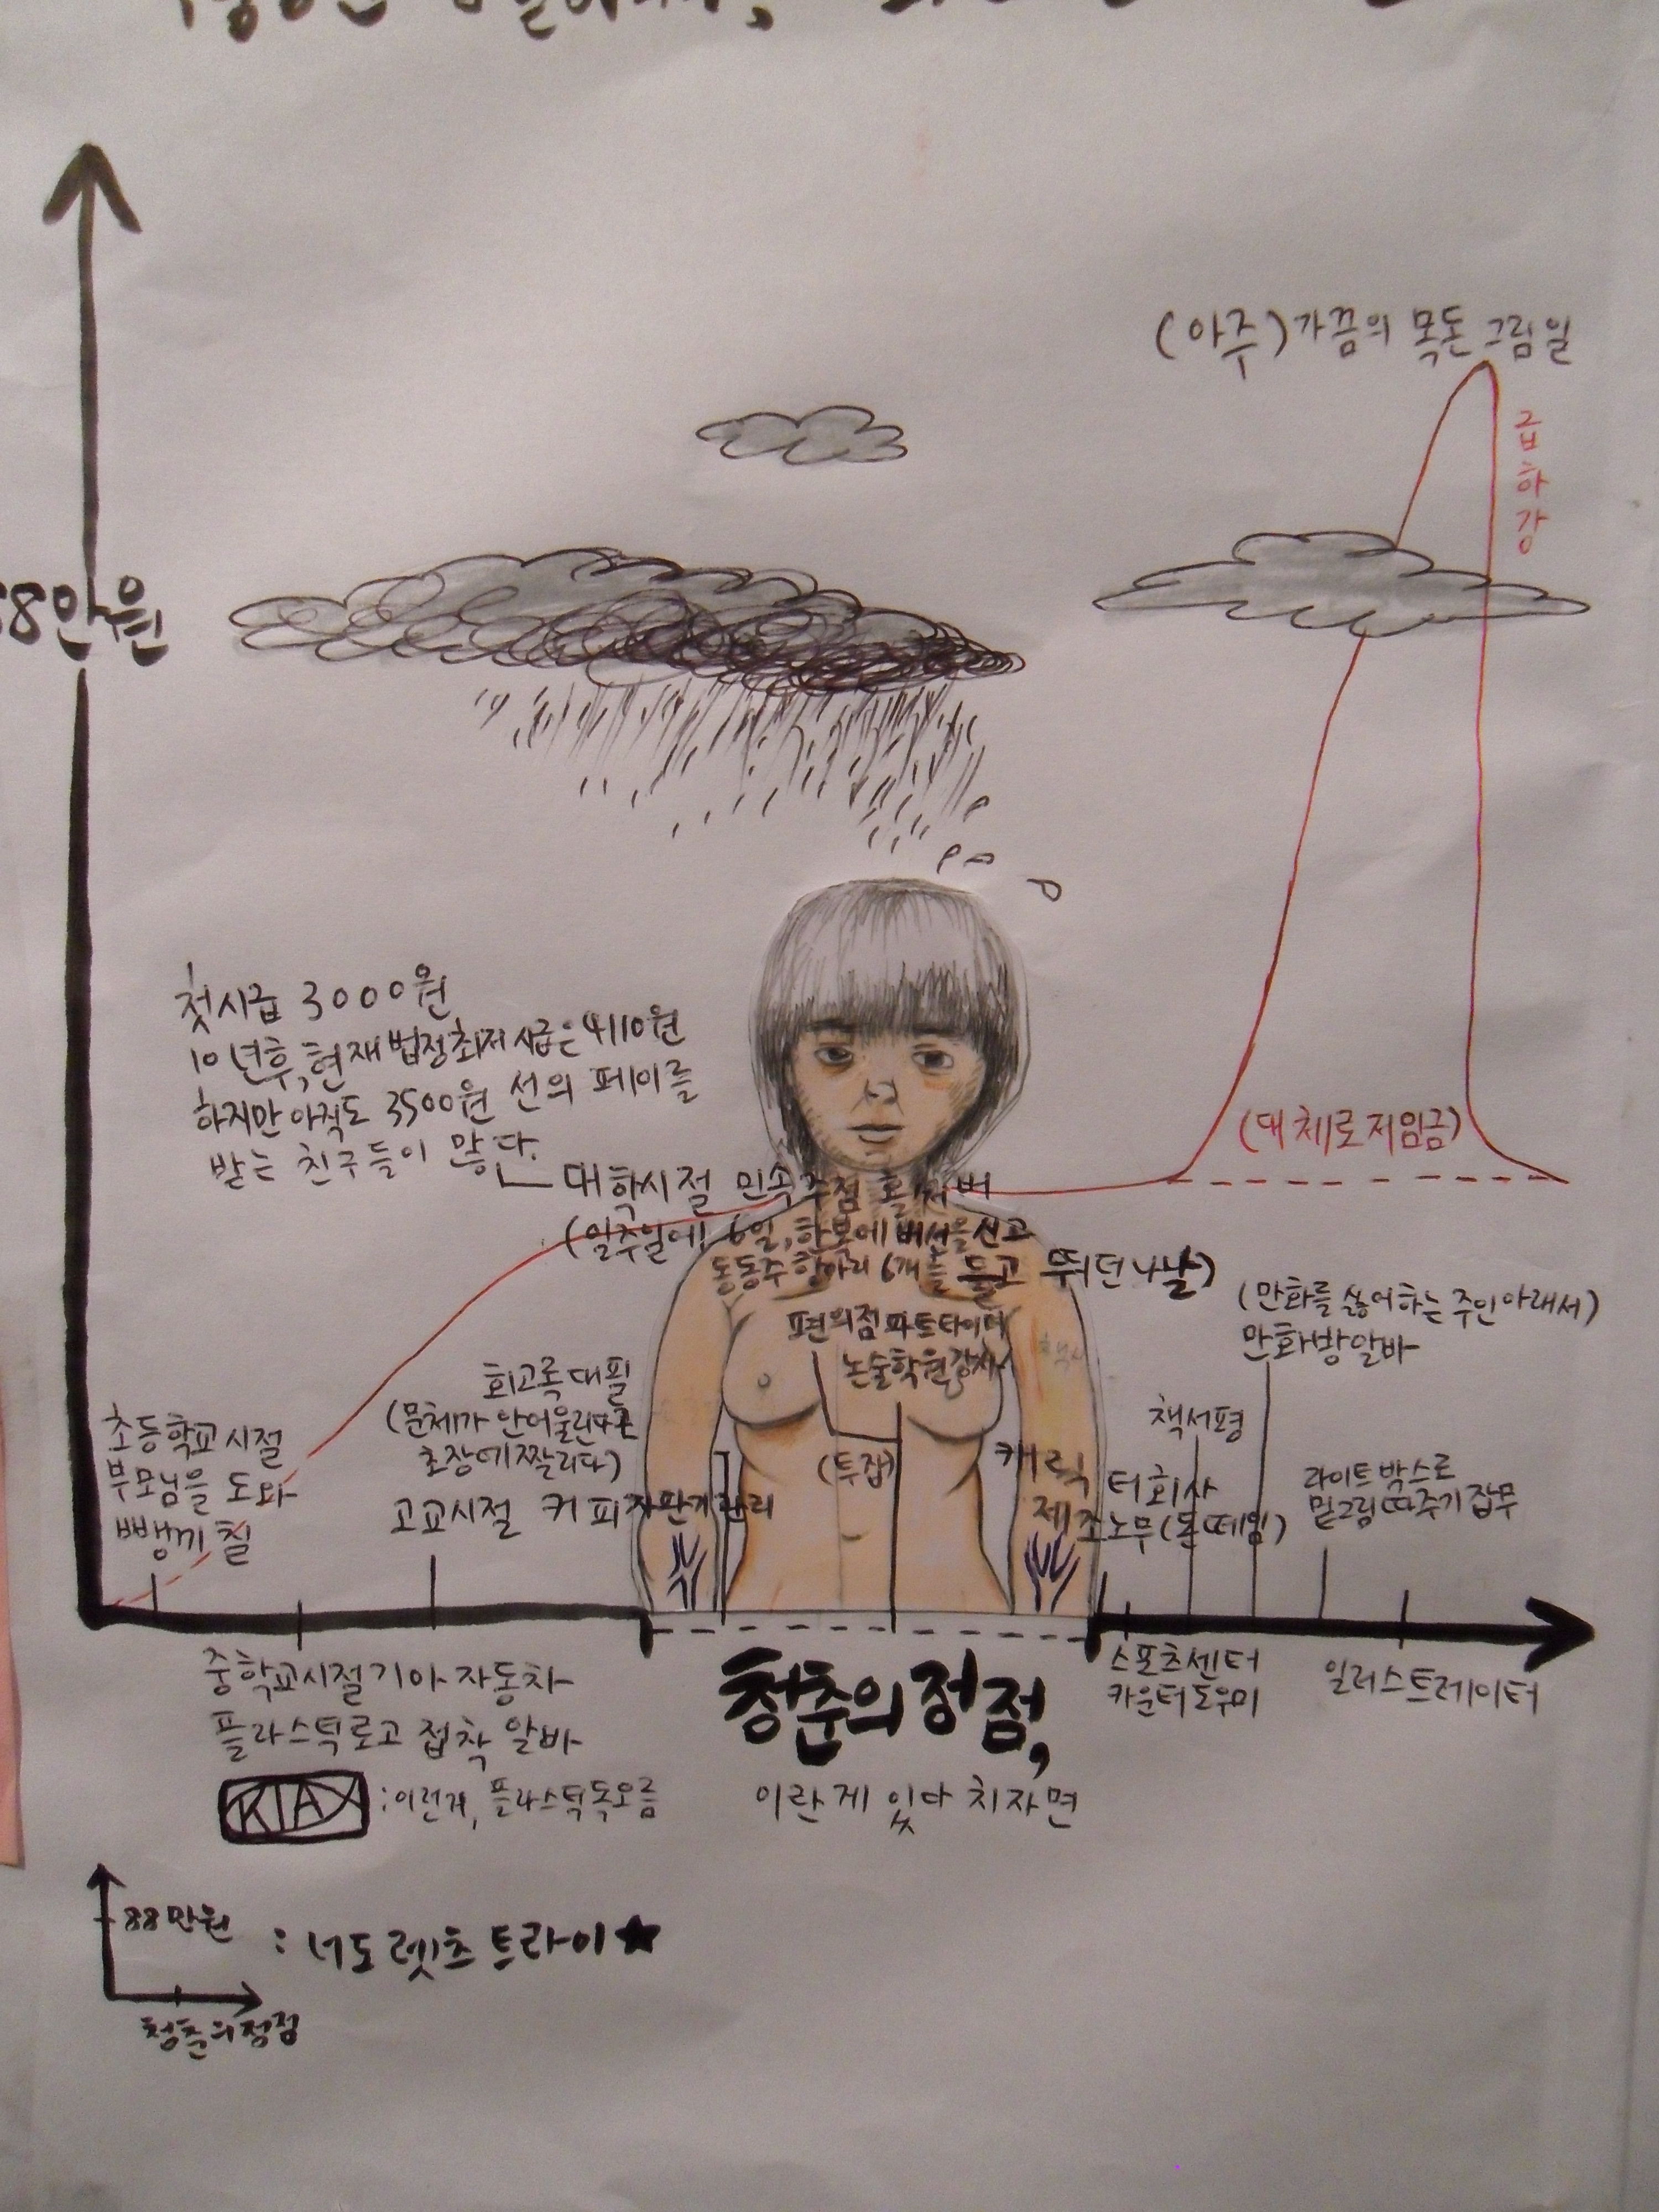 (아주)가끔의 목돈 그림일
급하강
88만원
첫시급 3000원
10년후, 현재 법정최저시급은 4110원
하지만 아직도 3500원 선의 페이를
받는 친구들이 많다.
대학시절 민속주점 홀서버
(일주일에 6일, 한복에 버선을 신고
동동주 항아리 6개를 들고 뛰던 나날)
(대체로 저임금)
편의점 파트타이머
논술학원강사
(투잡)
(만화를 싫어하는 주인 아래서)
만화방알바
회고록 대필
(문체가 안어울린다고
초장에 짤리다)
고교시절 커피자판기관리
초등학교 시절
부모님을 도와
뺑끼칠
캐릭터회사
제조노무(돈떼임)
책서평
라이트박스로
밑그림 따주기 잡무
중학교시절 기아 자동차
플라스틱로고 접착 알바
KIA : 이런거, 플라스틱독오름
청춘의 정점,
이란게 있다 치자면
스포츠센터
카운터도우미
일러스트레이터
88만원
: 너도 렛츠 트라이★
청춘의정점